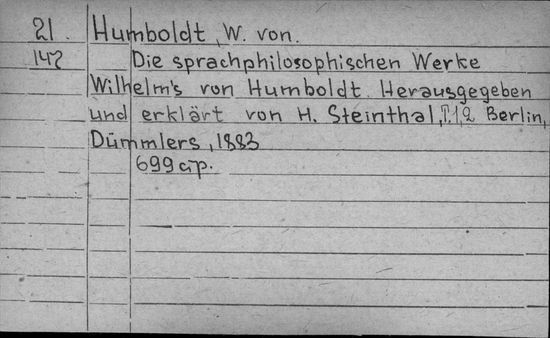 21. Humboldt, W. von.
147 Die sprachphilosophischen Werke
Wilhelm's von Humboldt. Herausgegeben
und erklärt von H. Steinthal, T.1,2 Berlin,
Dümmlers, 1883
699 стр.